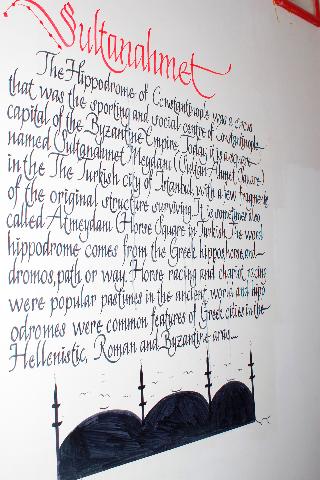 Sultanahmet
The Hippodrome of Constantinople was a circus
that was the sporting and social centre of Constantinople
capital of the Byzantine Empire. Today it is a square
named Sultanahmet Meydani (Sultan Ahmet Square)
in the The Turkish city of Istanbul, with a few fragments
of the original structure surviving. It is sometimes also
called Atmeydani (Horse Square in Turkish. The word
hippodrome comes from the Greek hippos, horse, and
dromos, path or way. Horse racing and chariot racing
were popular pastimes in the ancient world and hipp
odromes were common features of Greek cities in the
Hellenistic, Roman and Byzantine eras